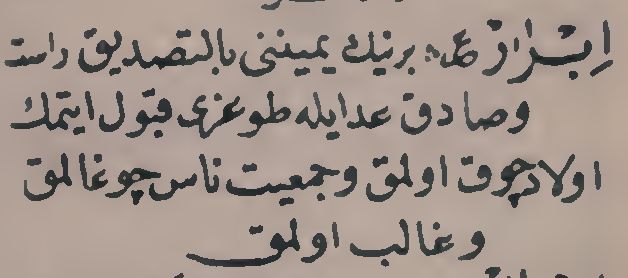 اِبْرَارْ ع ه برينك يمينني بالتصديق راست
وصادق عد ايله طوغرى قبول ايتمك
اولاد چوق اولمق وجمعيت ناس چوغالمق
وغالب اولمق